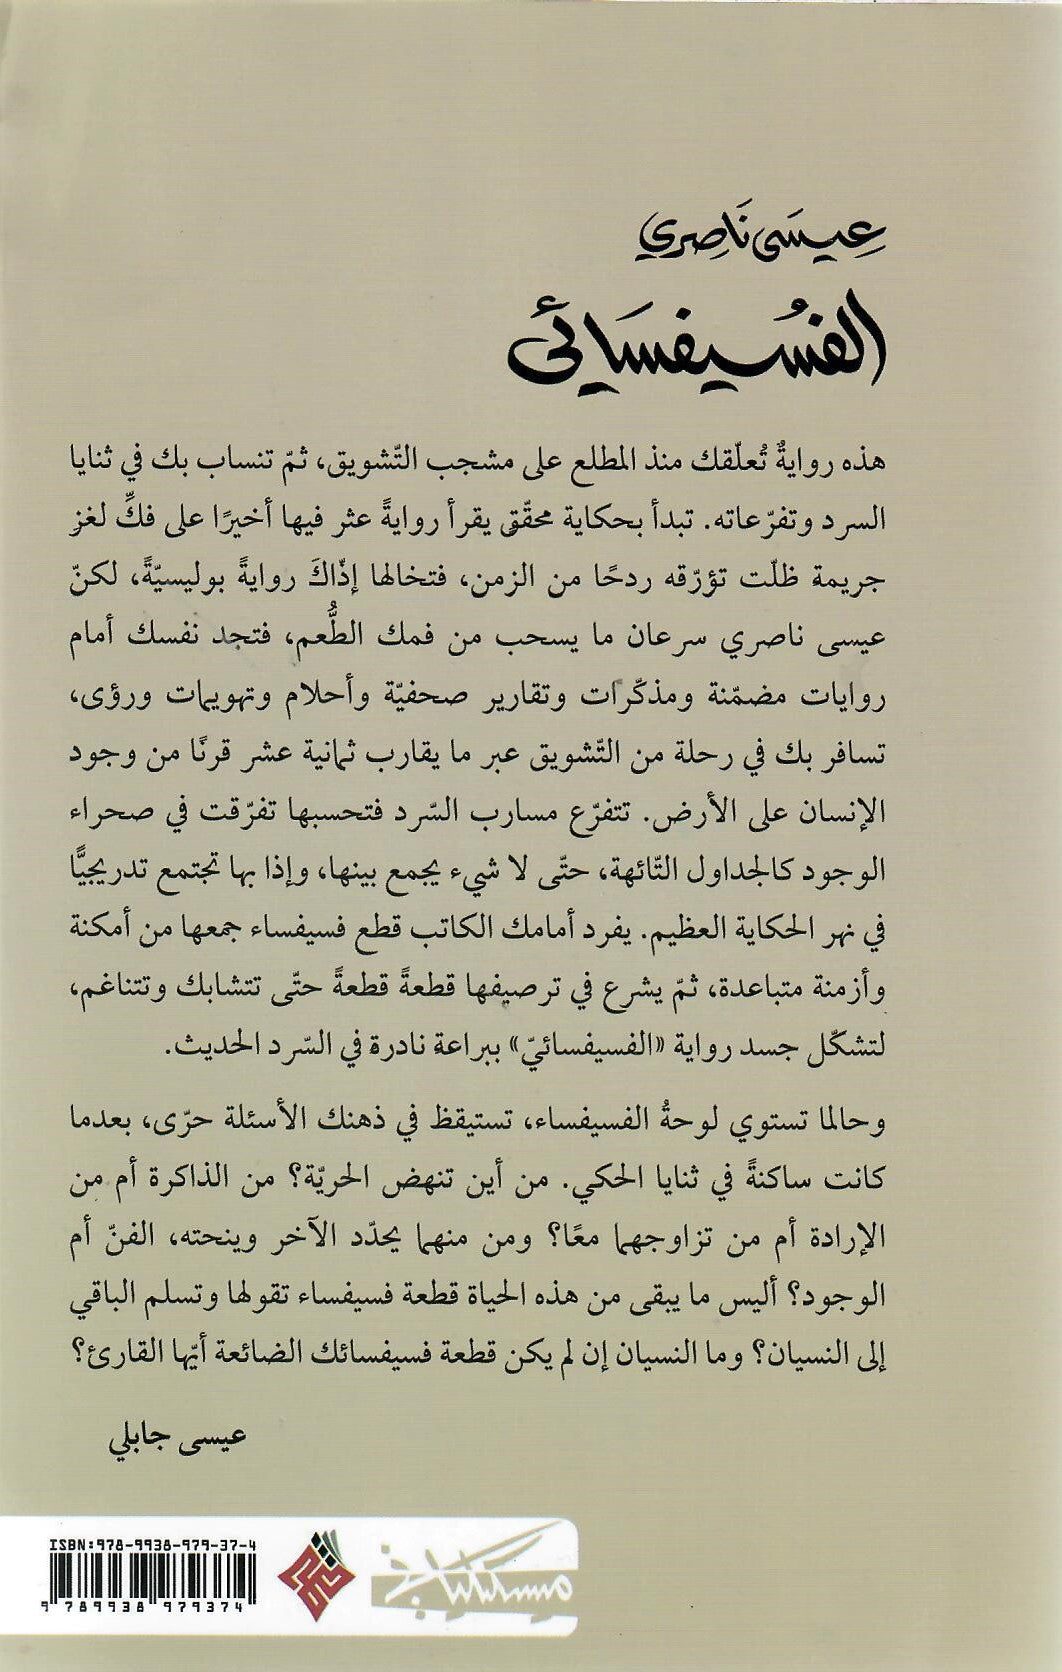 عِيسَى نَاصِري
الفُسيفسَائي
هذه روايةٌ تُعلّقك منذ المطلع على مشجب التّشويق، ثمّ تنساب بك في ثنايا
السرد وتفرّعاته. تبدأ بحكاية محقّق يقرأ روايةً عثر فيها أخيرًا على فكِّ لغز
جريمة ظلّت تؤرّقه ردحًا من الزمن، فتخالها إذّاكَ روايةً بوليسيّةً، لكنّ
عيسى ناصري سرعان ما يسحب من فمك الطُّعم، فتجد نفسك أمام
روايات مضمّنة ومذكّرات وتقارير صحفيّة وأحلام وتهويمات ورؤى،
تسافر بك في رحلة من التّشويق عبر ما يقارب ثمانية عشر قرنًا من وجود
الإنسان على الأرض. تتفرّع مسارب السّرد فتحسبها تفرّقت في صحراء
الوجود كالجداول التّائهة، حتّى لا شيء يجمع بينها، وإذا بها تجتمع تدريجيًّا
في نهر الحكاية العظيم. يفرد أمامك الكاتب قطع فسيفساء جمعها من أمكنة
وأزمنة متباعدة، ثمّ يشرع في ترصيفها قطعةً قطعةً حتّى تتشابك وتتناغم،
لتشكّل جسد رواية «الفسيفسائيّ» ببراعة نادرة في السّرد الحديث.
وحالما تستوي لوحةُ الفسيفساء، تستيقظ في ذهنك الأسئلة حرّى، بعدما
كانت ساكنةً في ثنايا الحكي. من أين تنهض الحريّة؟ من الذاكرة أم من
الإرادة أم من تزاوجهما معًا؟ ومن منهما يحدّد الآخر وينحته، الفنّ أم
الوجود؟ أليس ما يبقى من هذه الحياة قطعة فسيفساء تقولها وتسلم الباقي
إلى النسيان؟ وما النسيان إن لم يكن قطعة فسيفسائك الضائعة أيّها القارئ؟
عيسى جابلي
ISBN:978-9938-979-37-4
9 789938 979374
مسكيلياني